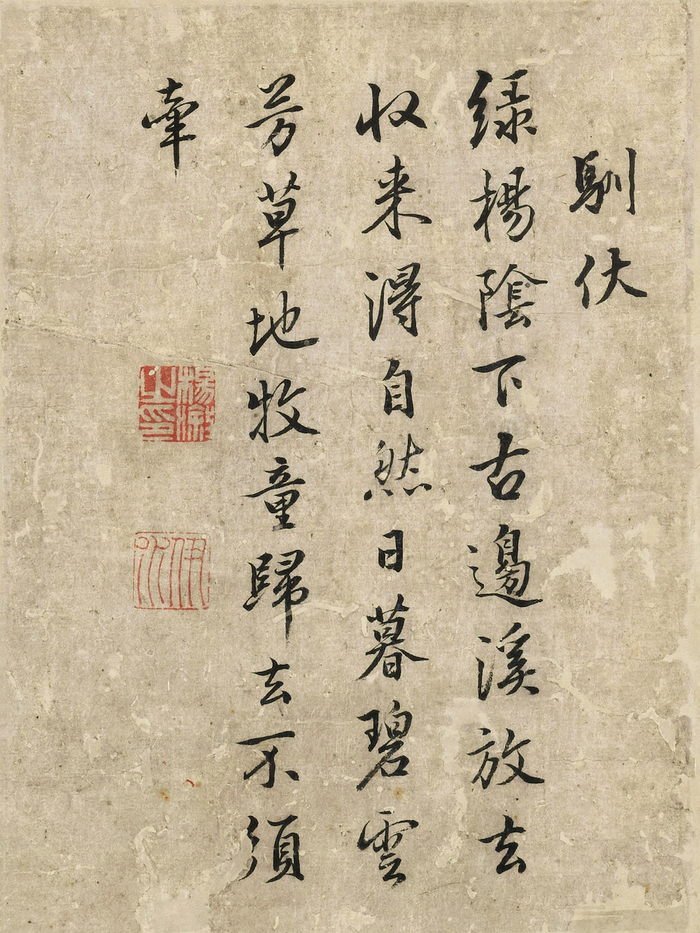 馴伏
綠楊陰下古邊溪放去
收来得自然日暮碧雲
芳草地牧童歸去不須
牽